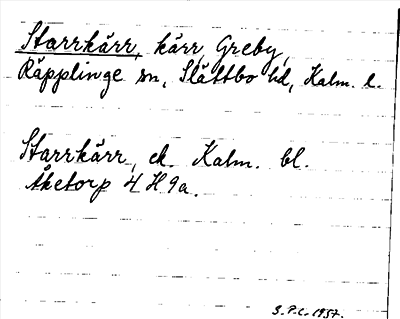 Starrkärr, kärr Greby,
Räpplinge sn, Slättbo hd, Kalm. l.
Starrkärr, ek. Kalm. bl.
Åketorp 4 H 9a.
S.P.L. 1957.